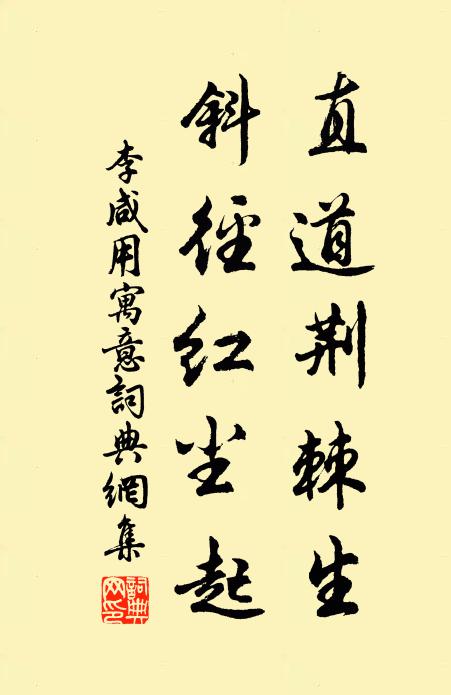 直道荆棘生
斜徑红尘起
李咸用寓意詞典網集
詞典網印